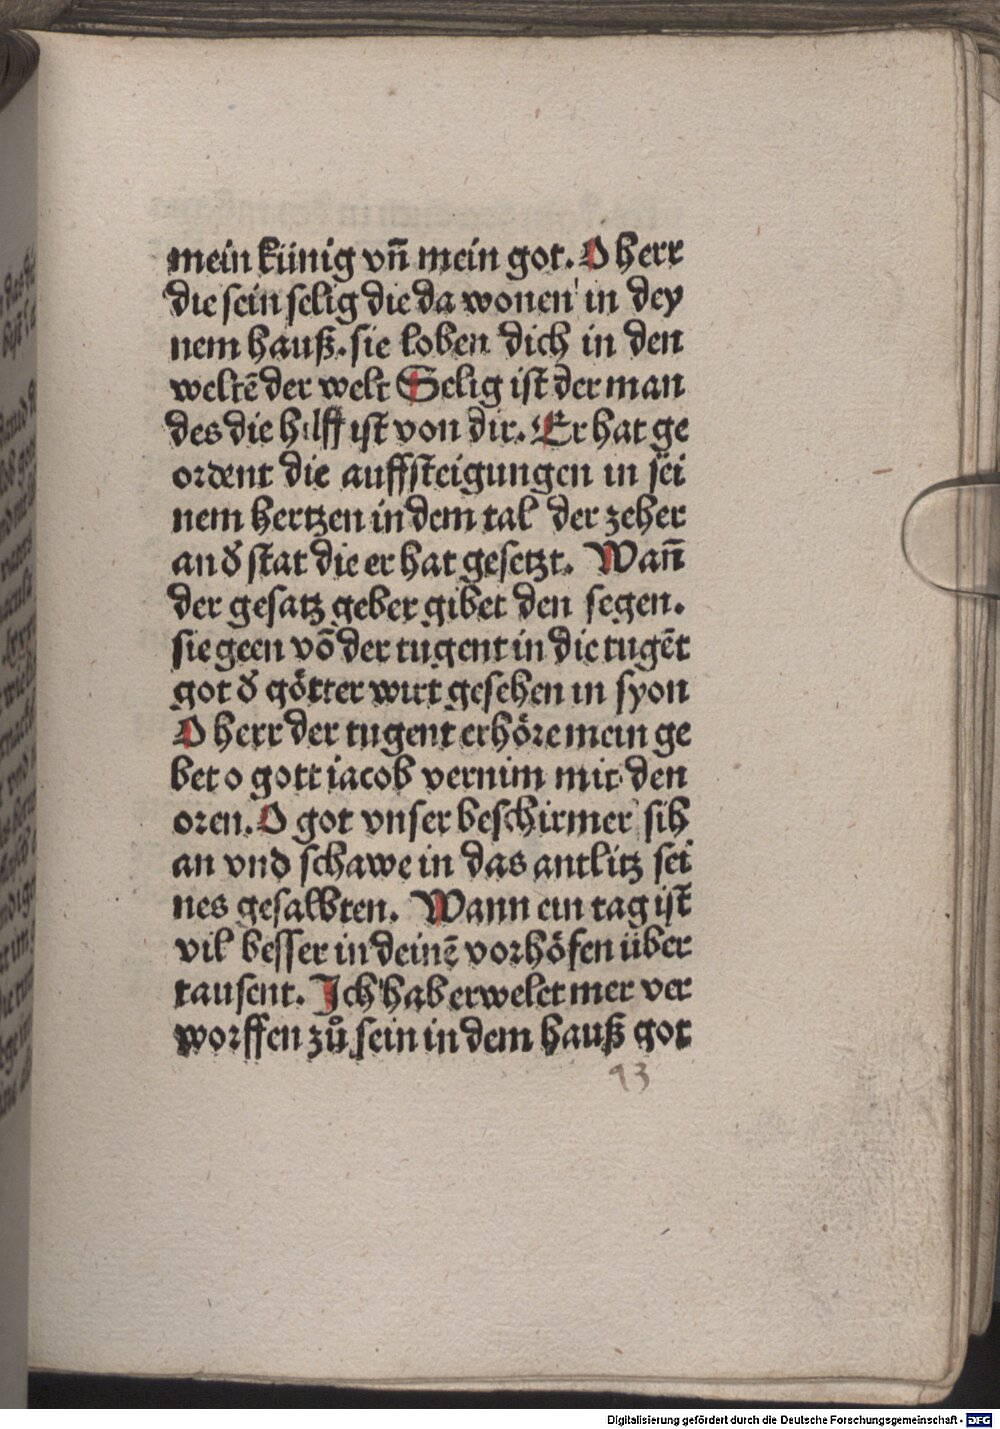 mein künig vñ mein got. O herr
die sein selig die da wonen in dey
nem hauß. sie loben dich in den
weltē der welt Selig ist der man
des die hilff ist von dir. Er hat ge
ordent die auffsteigungen in sei
nem hertzen in dem tal der zeher
an d̕ stat die er hat gesetzt. Wañ
der gesatz geber gibet den segen.
sie geen võ der tugent in die tugēt
got d̕ götter wirt gesehen in syon
O herr der tugent erhöre mein ge
bet o gott iacob vernim mit den
oren. O got vnser beschirmer sih
an vnd schawe in das antlitz sei
nes gesalbten. Wann ein tag ist
vil besser in deinē vorhöfen über
tausent. Ich hab erwelet mer ver
worffen zů sein in dem hauß got
93
Digitalisierung gefördert durch die Deutsche Forschungsgemeinschaft - DFG